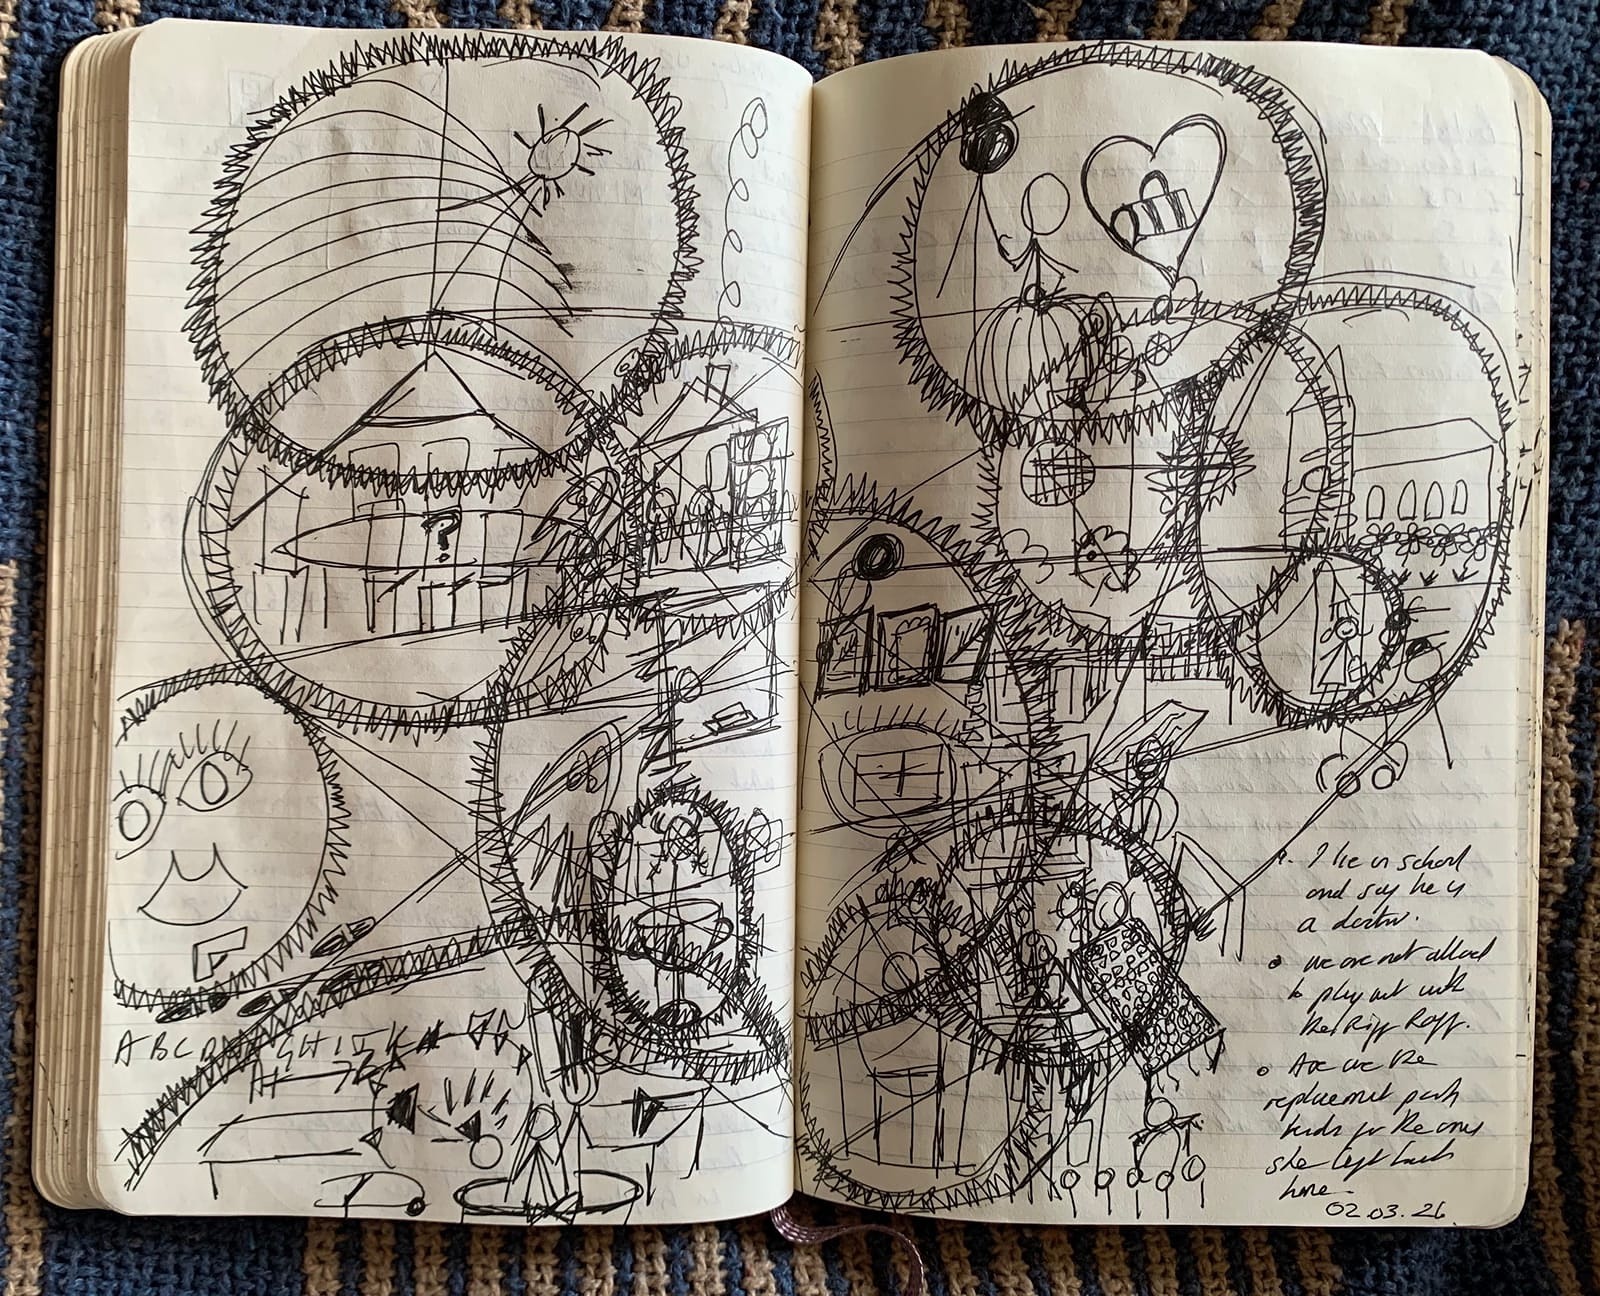 ?
F
A B C D E F G H I J K
A → Z
• I lie in school
and say he is
a doctor.
• we are not allowed
to play out with
the Riff Raff.
• Are we the
replacement posh
kids for the ones
she left back
home
02.03.26.